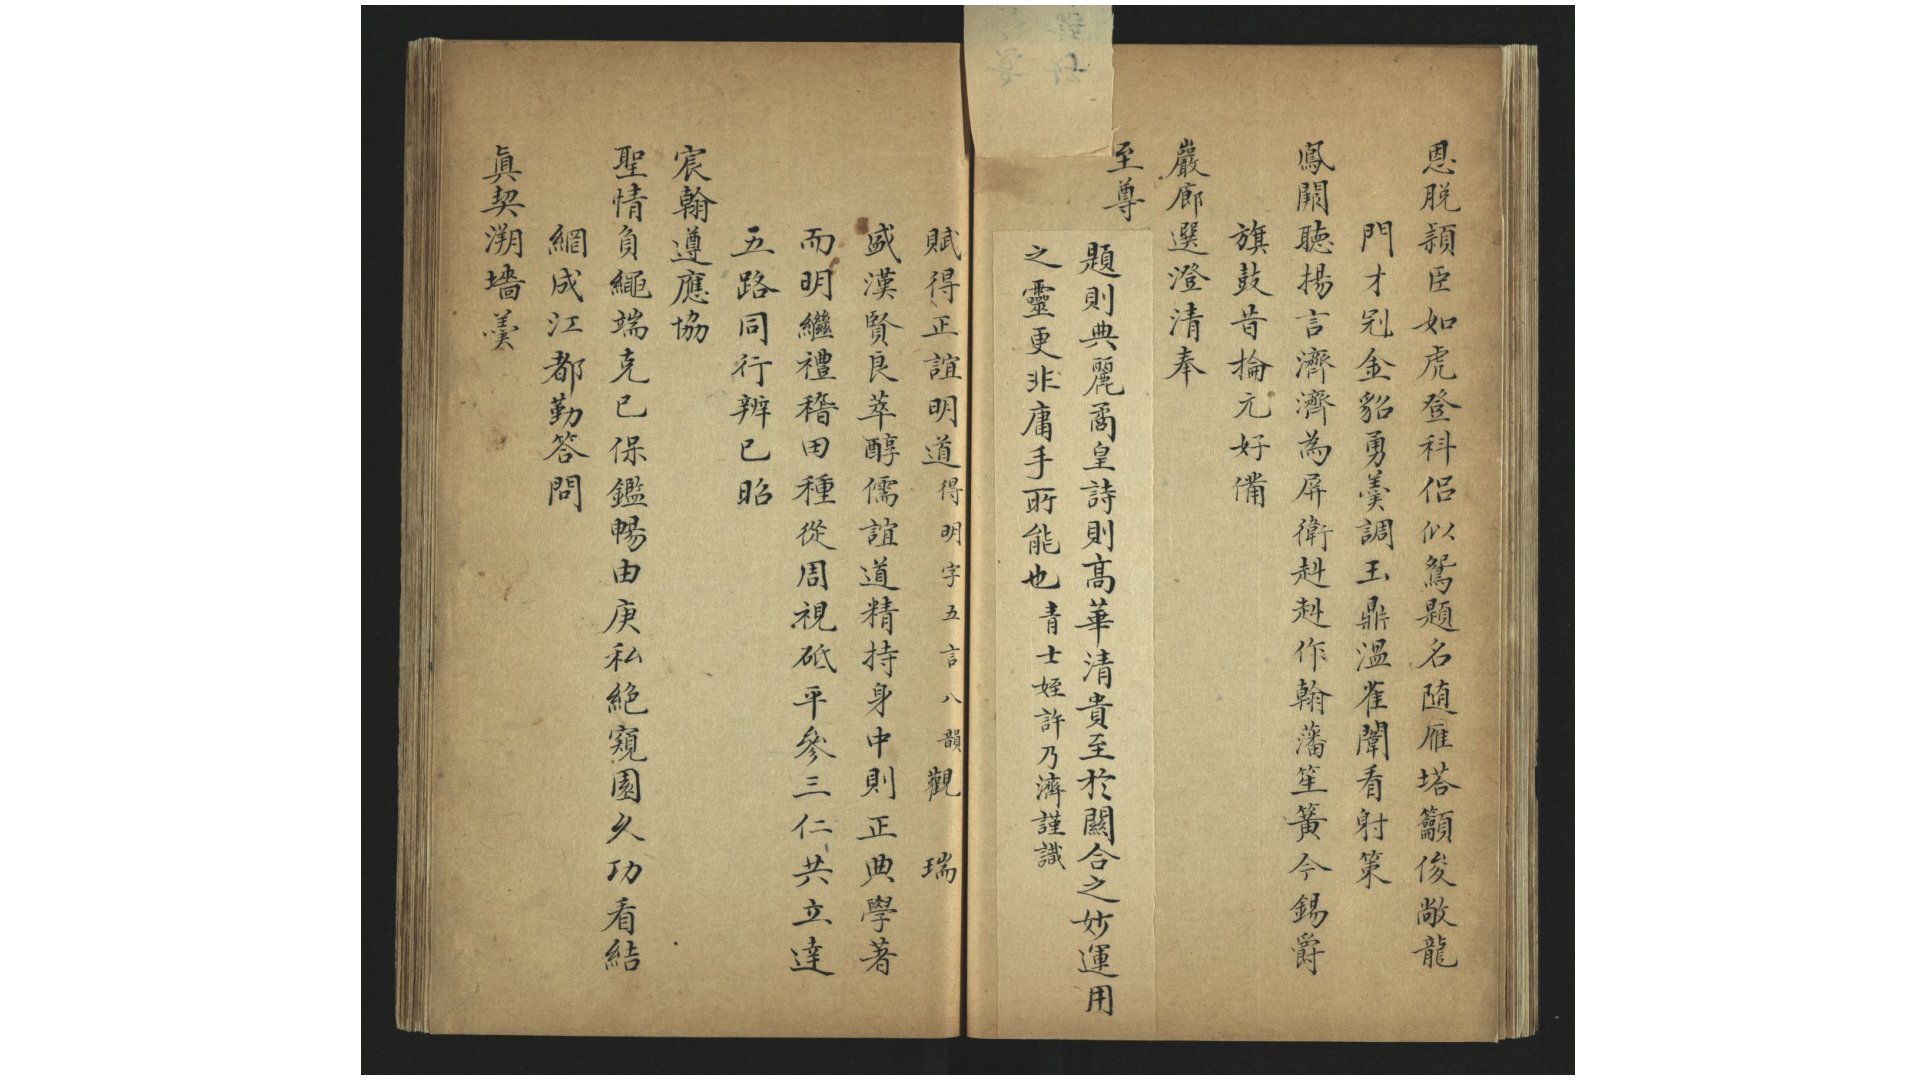 恩脱頴臣如虎登科侣似鴛題名随雁塔籲俊敞龍
門才冠金貂勇羹調玉鼎温雀闈看射策
鳳闕聴揚言濟濟為屏衛赳赳作翰藩笙簧今錫爵
旗鼓昔掄元好備
嚴廊選澄清奉
至尊
題則典麗矞皇詩則高華清貴至於闗合之妙運用
之靈更非庸手所能也青士姪許乃濟謹識
賦得正誼明道得明字五言八韻觀 瑞
盛漢賢良萃醇儒誼道精持身中則正典學著
而明繼禮稽田種從周視砥平參三仁共立達
五路同行辨已昭
宸翰遵應協
聖情負繩端克己保鑑暢由庚私絶窺園久功看結
網成江都勤答問
眞契溯墻羹